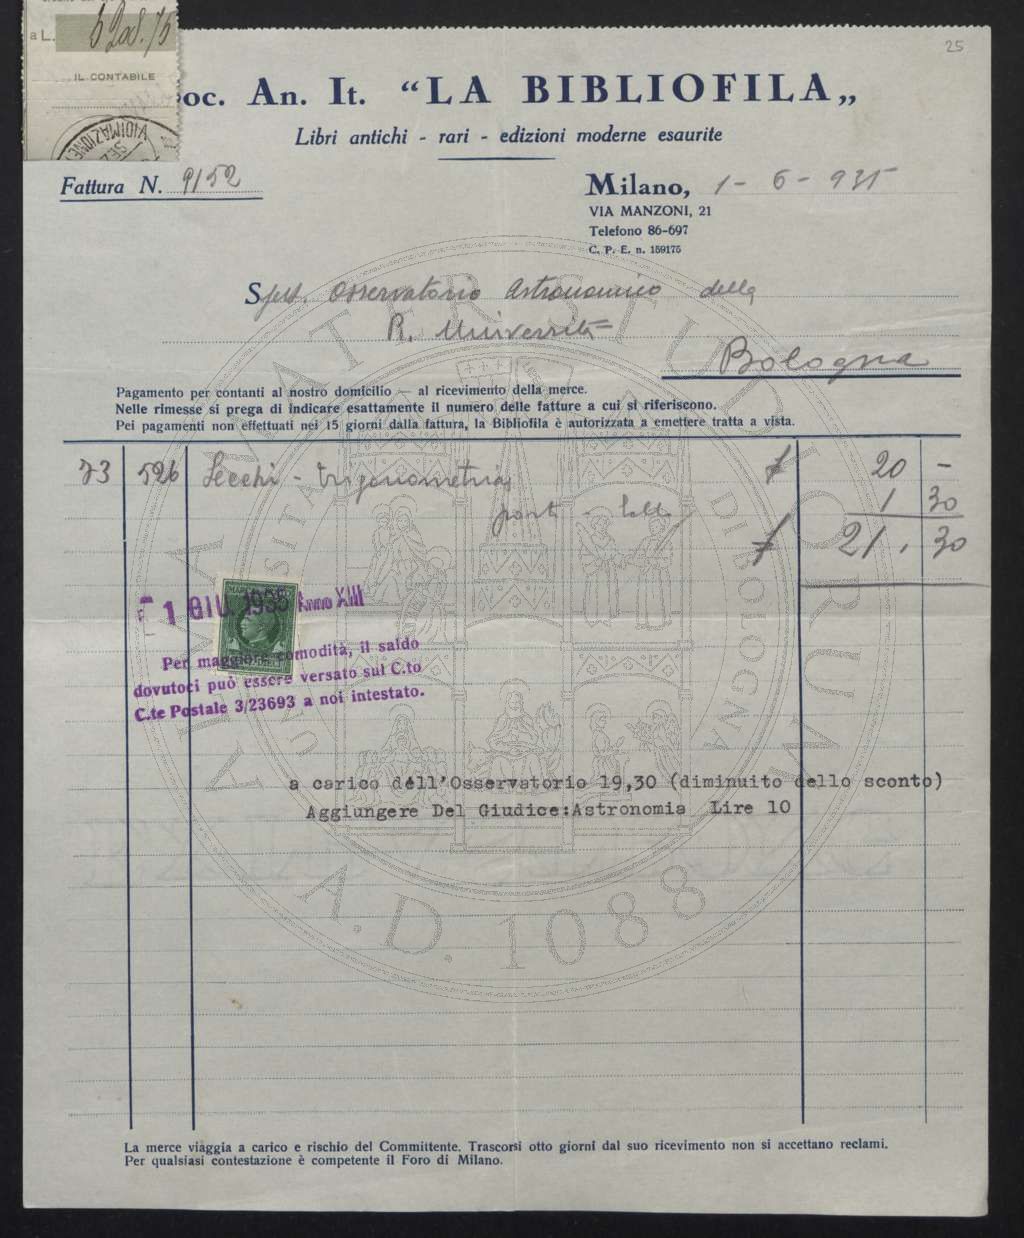 25
a L. 5208.75
IL CONTABILE
VIDIMAZIONE
oc. An. It. “LA BIBLIOFILA„
Libri antichi - rari - edizioni moderne esaurite
Fattura N. 9152
Milano, 1 - 6 - 935
VIA MANZONI, 21
Telefono 86-697
C. P. E. n. 159175
Spett. Osservatorio Astronomico della
R. Università
Bologna
Pagamento per contanti al nostro domicilio — al ricevimento della merce.
Nelle rimesse si prega di indicare esattamente il numero delle fatture a cui si riferiscono.
Pei pagamenti non effettuati nei 15 giorni dalla fattura, la Bibliofila è autorizzata a emettere tratta a vista.
73 526 Secchi - Trigonometria 20 -
1 30
21, 30
1 GIU. 1935 Anno XIII
Per maggiore comodità, il saldo
dovutoci può essere versato sul C.to
C.te Postale 3/23693 a noi intestato.
a carico dell'Osservatorio 19,30 (diminuito dello sconto)
Aggiungere Del Giudice:Astronomia Lire 10
ALMA MATER STUDIORUM
UNIVERSITAS DI BOLOGNA
A.D. 1088
La merce viaggia a carico e rischio del Committente. Trascorsi otto giorni dal suo ricevimento non si accettano reclami.
Per qualsiasi contestazione è competente il Foro di Milano.